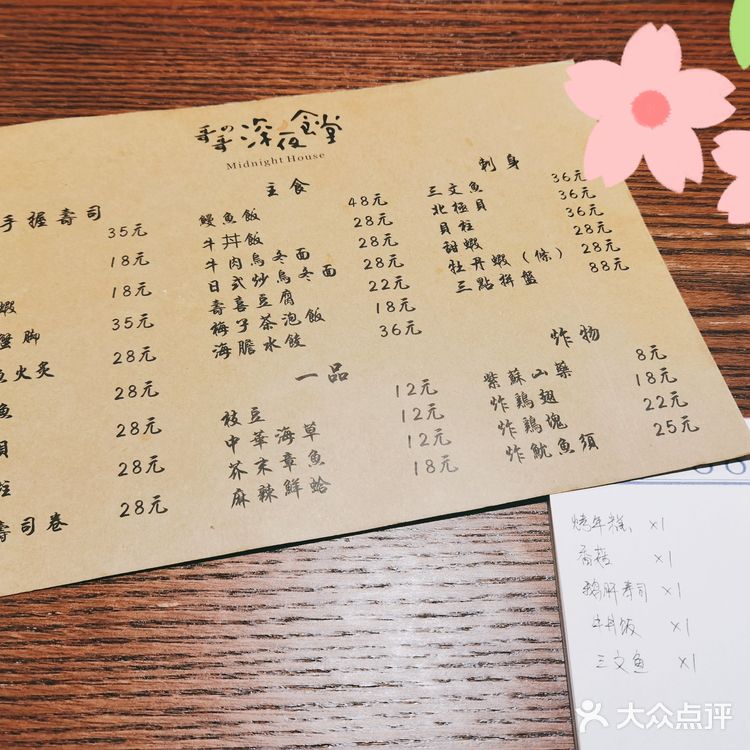 哥の哥 深夜食堂
Midnight House
手握壽司
35元
18元
蝦 18元
蟹脚 35元
火炙 28元
魚 28元
28元
28元
壽司卷 28元
主食
鰻魚飯 48元
牛丼飯 28元
牛肉烏冬面 28元
日式炒烏冬面 28元
壽喜豆腐 22元
梅子茶泡飯 18元
海膽水餃 36元
一品
枝豆 12元
中華海草 12元
芥末章魚 12元
麻辣鮮蛤 18元
刺身
三文魚 36元
北極貝 36元
貝柱 36元
甜蝦 28元
牡丹蝦（條） 28元
三點拼盤 88元
炸物
紫蘇山藥 8元
炸鷄翅 18元
炸鷄塊 22元
炸魷魚須 25元
烤年糕 x1
香菇 x1
鹅肝寿司 x1
牛丼饭 x1
三文鱼 x1
大众点评